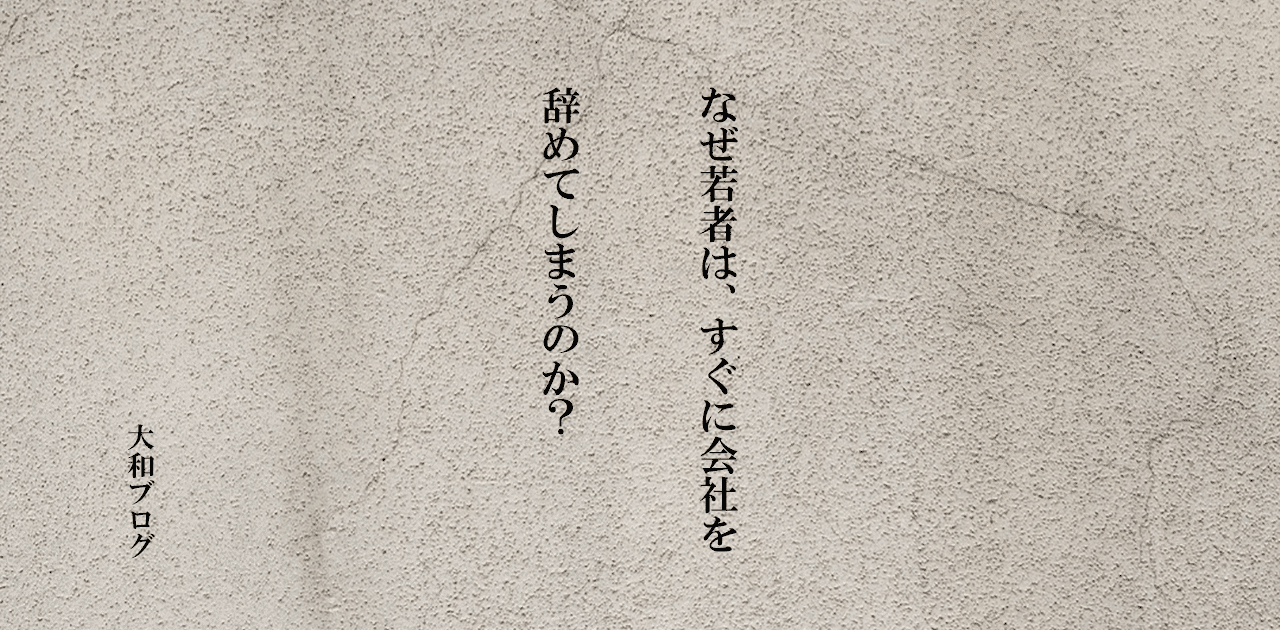 なぜ若者は、すぐに会社を
辞めてしまうのか？
大和ブログ